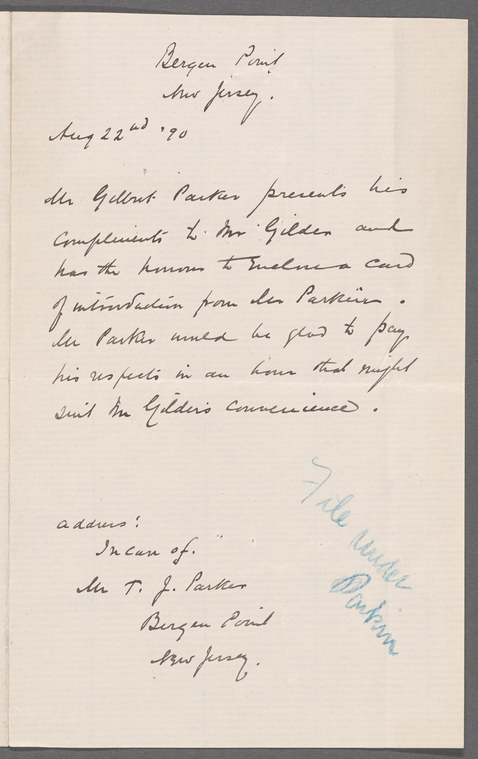 Bergen Point
New Jersey.
Aug 22nd '90
Mr Gilbert Parker presents his
compliments to Mr Gilder and
has the honour to Enclose a card
of introduction from Mr Parkin.
Mr Parker would be glad to pay
his respects in an hour that might
suit Mr Gilder's convenience.
address:
In care of.
Mr T. J. Parker
Bergen Point
New Jersey.
File under
Parkin